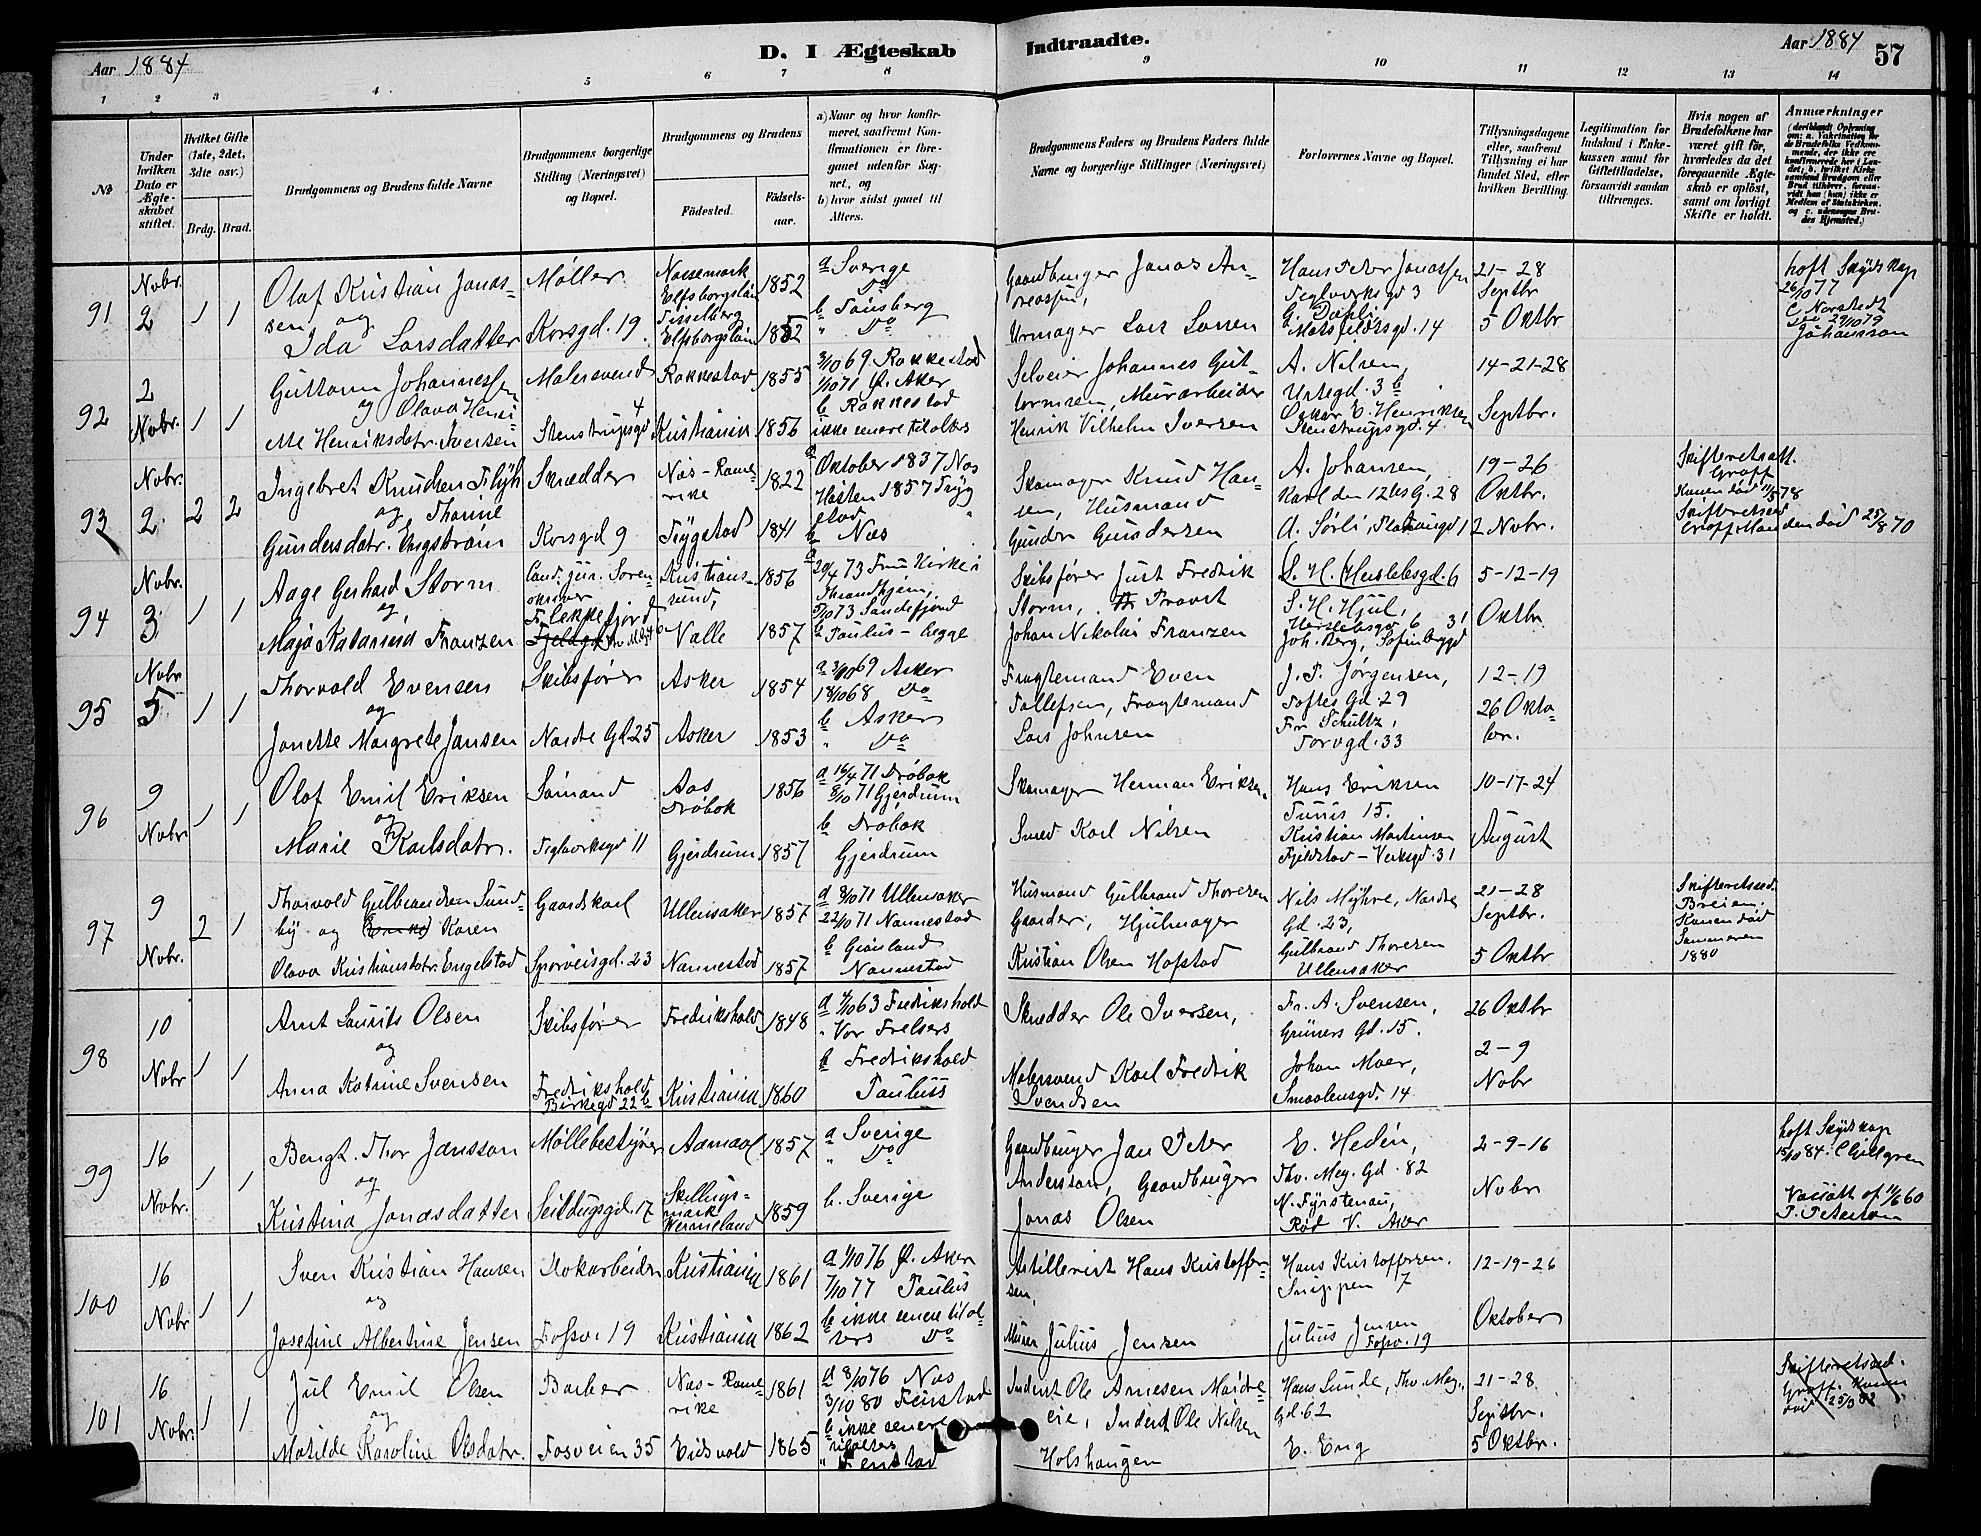 Aar 1884
D. I Ægteskab
Indtraadte.
Aar 1884
57
1 2 3 4 5 6 7 8 9 10 11 12 13 14
No
Under hvilken Dato er Ægteskabet stiftet.
Hvilket Gifte (1ste, 2det, 3dte osv.)
Brdg.
Brud.
Brudgommens og Brudens fulde Navne
Brudgommens borgerlige Stilling (Næringsvei) og Bopæl.
Brudgommens og Brudens
Fødested.
Fødselsaar.
a) Naar og hvor konfirmeret, saafremt Konfirmationen er foregaaet udenfor Sognet, og
b) hvor sidst gaaet til Alters.
Brudgommens Faders og Brudens Faders fulde Navne og borgerlige Stillinger (Næringsvei)
Forlovernes Navne og Bopæl.
Tillysningsdagene eller, saafremt Tillysning ei har fundet Sted, efter hvilken Bevilling.
Legitimation for Indskud i Enkekassen samt for Giftetilladelse, forsaavidt saadan tiltrænges.
Hvis nogen af Brudefolkene har været gift før, hvorledes da det foregaaende Ægteskab er opløst, samt om lovligt Skifte er holdt.
Anmærkninger
91
Nobr. 2
1 1
Olaf Kristian Jonassen og
Ida Larsdatter
Møller
Korsgd. 19
Elfsborgslän
Elfsborgslän
1852
1852
a Sverige
Do
b Tønsberg
" Do
Gaardbruger Jonas Andreassen,
Urmager Lars Larsen
Hans Peter Jonassen
Teglverksgd 3
14
21-28 Septbr
5 Oktbr
26/10 77
Johansson
92
2 Nobr.
1 1
Guttorm Johannessen
og Olava Henriette Henriksdatr. Iversen
Malersvend
Stenstrupsgd 4
Rakkestad
Kristiania
1855
1856
3/10 69 Rakkestad
1/10 71 Ø. Aker
b Rakkestad
ikke senere til alters
Selveier Johannes Guttormsen, Murarbeider
Henrik Vilhelm Iversen
A. Nilsen,
Urtegd. 3 b
Oskar E. Henriksen
Stenstrupsgd. 4
14-21-28
Septbr.
93
Nobr. 2
2 2
Ingebret Knudsen Flyh
og Thorine
Gundersdatr. Engstrøm
Skrædder
Korsgd 9
Næs-Romerike
Trygstad
1822
1841
a Oktober 1837 Næs
Høsten 1857 Trygstad
b Næs
Skomager Knud Hansen, Husmand
Gunder Gundersen
A. Johansen,
Karl den 12tes G. 28
A. Sørli,
19-26
Oktbr.
2 Nobr.
Skifteretsatt.
Graff
Konen død 11/5 78
Skifteretsed
Graff. Manden død 25/8 70
94
Nobr. 3
1 1
Aage Gerhard Storm
og
Maja Katarina Franzen
Cand. jur. Sorenskriver
Flekkefjord
Kristianssund,
Valle
1856
1857
a 20/4 73 Frue Kirke i Throndhjem,
5/10 73 Sandefjord
b Paulus - begge
Skibsfører Just Fredrik Storm, Provst
Johan Nikolai Franzen
S. H. Herslebsgd. 6
S. H. Hjul,
Herslebsgd 6
Joh. Berg, Sofienbergd 31
5-12-19
Oktbr
95
Nobr 5
1 1
Thorvald Evensen
og
Janette Margrete Jansen
Skibsfører
Nordre Gd 25
Asker
Asker
1854
1853
a 3/10 69 Asker
18/10 68 Do
b Asker
" Do
Fragtemand Even
Tollefsen, Fragtemand
Lars Johnsen
J. P. Jørgensen,
Toftes Gd. 29
Fr. Schultz,
Torvgd. 33
12-19
26 Oktobr.
96
9 Nobr
1 1
Olaf Emil Eriksen
og
Marie Karlsdatr.
Sømand
Teglverksgd 11
Aas
Drøbak
Gjerdrum
1856
1857
a 16/4 71 Drøbak
8/10 71 Gjerdrum
b Drøbak
Gjerdrum
Skomager Herman Eriksen,
Smed Karl Nilsen
Hans Eriksen
Tunis 15.
Kristian Martinsen
Fjeldstad - Verksgd. 31
10-17-24
August
97
9 Nobr.
2 1
Thorvald Gulbrandsen Sundby og Karen
Olava Kristiansdatr. Engelstad
Gaardskarl
Sporveisgd. 23
Ullensaker
Nannestad
1857
1857
a 8/10 71 Ullensaker
22/10 71 Nannestad
b Grønland
Nannestad
Husmand Gulbrand Thoresen
Gaarder, Hjulmager
Kristian Olsen Hofstad
Nils Myhre, Nordre Gd. 23,
Gulbrand Thoresen
Ullensaker
21-28
Septbr.
5 Oktbr
Skifteretsed.
Breien.
Konen død
Sommeren
1880
98
10 Nobr
1 1
Arnt Laurits Olsen
og
Anna Katrine Svensen
Skibsfører
Fredrikshald
Birkegd 22 b
Fredrikshald
Kristiania
1848
1860
a 4/10 63 Fredrikshald
" Vor Frelsers
b Fredrikshald
Paulus
Skrædder Ole Iversen,
Malersvend Karl Fredrik
Svendsen
Fr. A. Svensen,
Grüners Gd. 15.
Johan Moer,
Smaalensgd. 14
26 Oktbr
2-9
Nobr
99
16 Nobr.
1 1
Bengt Thor Jansson
og
Kristina Jonasdatter
Møllebestyrer
Seildugsgd. 17
Aamaal
Skillingsmark
Vermeland
1857
1859
a Sverige
" Do
b. Sverige
Gaardbruger Jan Peter
Andersson, Gaardbruger
Jonas Olsen
E. Hedén,
Thv. Mey. Gd. 82
N. Fyrstenau,
Rød V. Aker
2-9-16
Nobr
15/10 84.
P. Peterson
100
16 Nobr
1 1
Sven Kristian Hansen
og
Josefine Albertine Jensen
Dokarbeider
Fossv. 19
Kristiania
Kristiania
1861
1862
a 1/10 76 Ø. Aker
7/10 77 Paulus
b ikke senere til alters Do
Artillerist Hans Kristoffersen,
Murer Julius Jensen
Hans Kristoffersen.
Snippen 7
Julius Jensen
Fossv. 19
12-19-26
Oktober
101
16 Nobr.
1 1
Jul Emil Olsen
og
Matilde Karoline Olsdatr.
Barber
Fosveien 35
Næs-Romerike
Eidsvold
1861
1865
a 8/10 76 Næs
3/10 80 Feiestad
b ikke senere
til alters
" Fenstad
Inderst Ole Arnesen
Inderst Ole Nilsen
Holshaugen
Hans Lunde, Thv. Mey. Gd. 62
E. Eng
21-28
Septbr.
5 Oktbr.
Skifteretsed.
Graff. Konen